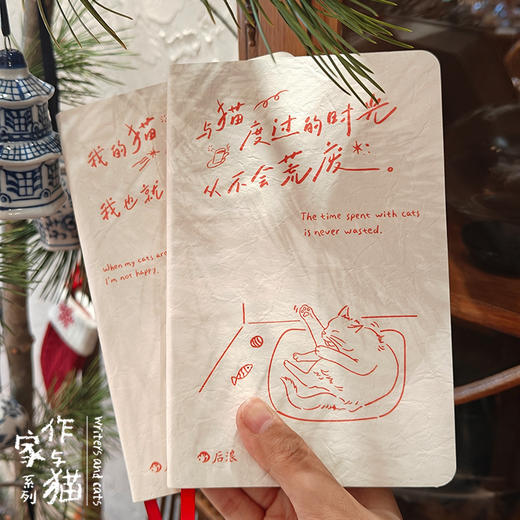 与猫度过的时光
从不会荒废。
The time spent with cats
is never wasted.
后浪
我的猫
我也就
When my cats are
I'm not happy.
作家与猫
系列
Writers and cats